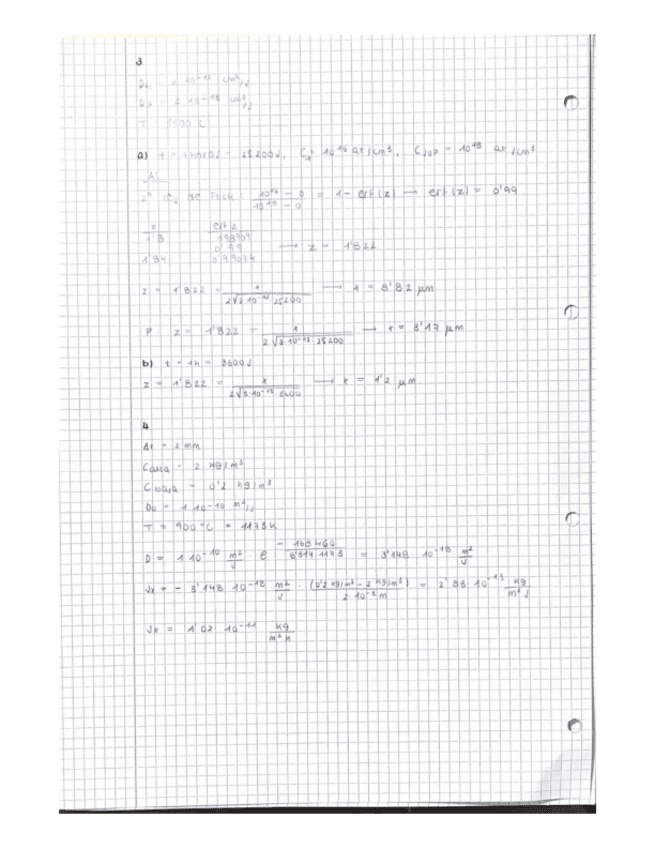 3
T = 1100 C
a) t = 25200 s, C = 10¹⁶ at/cm³, Csup = 10¹⁸ at/cm³
Al
de Fick: (10¹⁶ - 0)/(10¹⁸ - 0) = 1 - erf(z) → erf(z) = 0'99
z erf z
1'8 0'98909
0'99 → z = 1'822
1'84 0'99074
z = 1'822 = x/(2√(2·10⁻¹² 25200)) → x = 8'82 μm
P z = 1'822 = x/(2√(3·10⁻¹³ 25200)) → x = 3'17 μm
b) t = 1h = 3600 s
z = 1'822 = x/(2√(3·10⁻¹³ 3600)) → x = 1'2 μm
4
Δt = 2 mm
Calta = 2 kg/m³
Cbaja = 0'2 kg/m³
D₀ = 1 10⁻¹⁰ m²/s
T = 900 °C = 1173 K
D = 1 10⁻¹⁰ m²/s e^(- 168 460/(8'314 1173)) = 3'148 · 10⁻¹⁸ m²/s
Jx = - 3'148 10⁻¹⁸ m²/s · (0'2 kg/m³ - 2 kg/m³)/(2 10⁻³ m) = 2'83 10⁻¹⁵ kg/(m² s)
Jx = 1'02 · 10⁻¹¹ kg/(m² h)